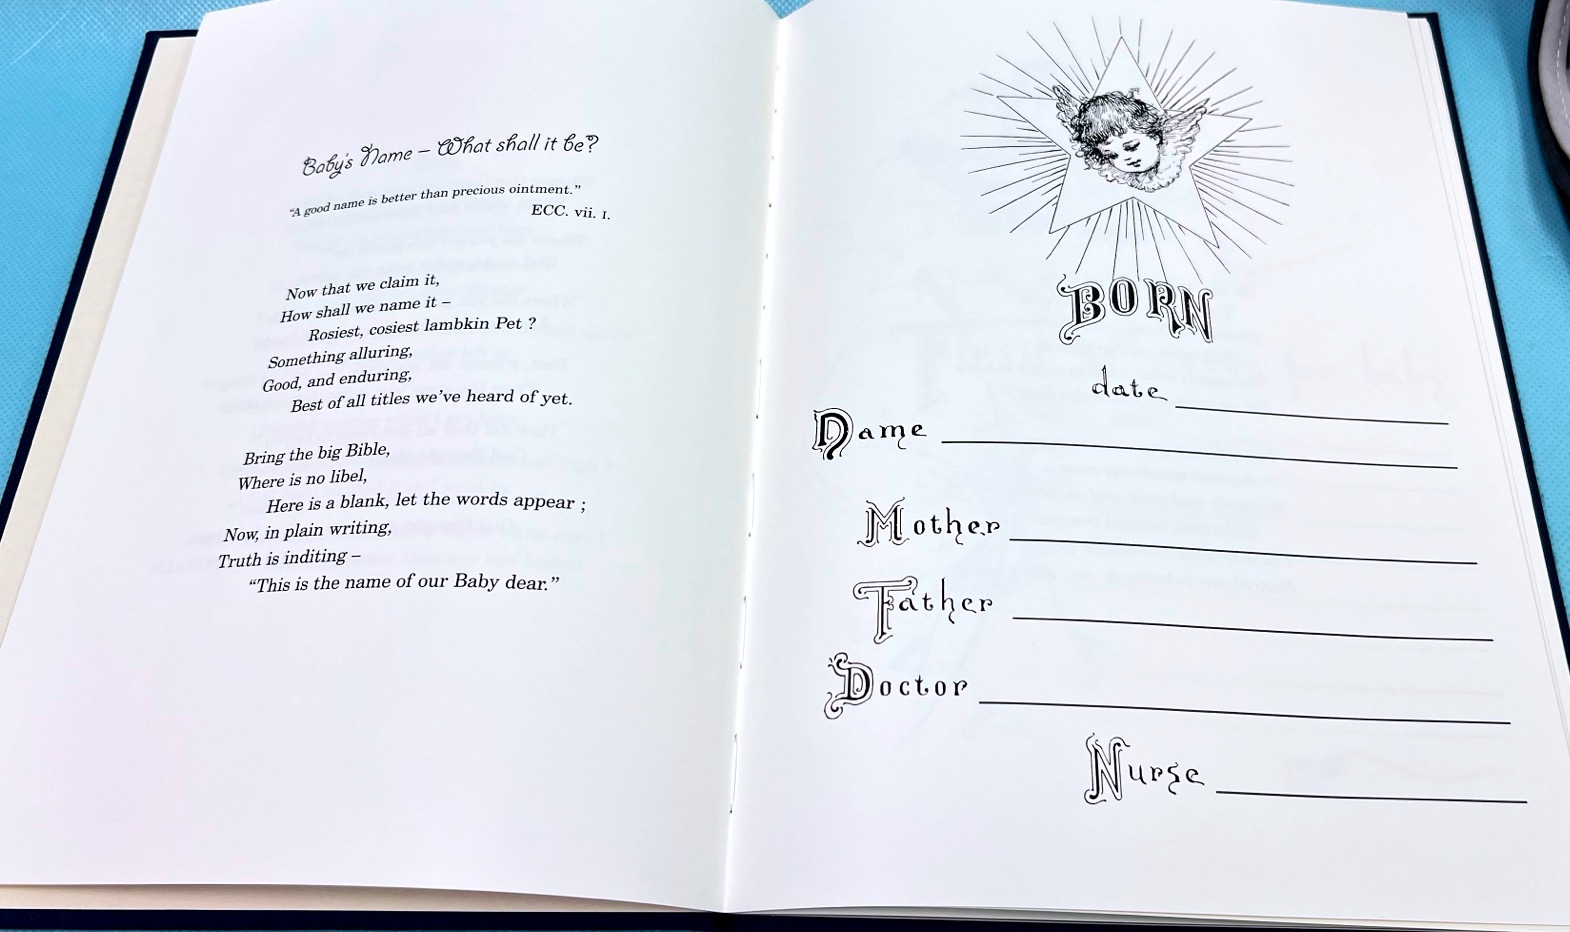 Baby's Name – What shall it be?
“A good name is better than precious ointment.”
ECC. vii. I.
Now that we claim it,
How shall we name it –
Rosiest, cosiest lambkin Pet ?
Something alluring,
Good, and enduring,
Best of all titles we’ve heard of yet.
Bring the big Bible,
Where is no libel,
Here is a blank, let the words appear ;
Now, in plain writing,
Truth is inditing –
“This is the name of our Baby dear.”
BORN
date
Name
Mother
Father
Doctor
Nurse